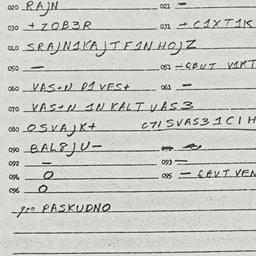 020 RAJN 021 –
030 + ZOB3R 031 + C1XT1K
040 SRAJN1KAJTF1NHOJZ
050 – 051 – GBUT V1KT
060 VAS+N D1VES+ 061 –
070 VAS+N 1N KALT VAS3
080 OSVAJK+ C71SVAS31C1H
090 BAL8JU–
092 – 093 –
094 O 095 – GBUT VEN
096 O
900 PASKUDNO